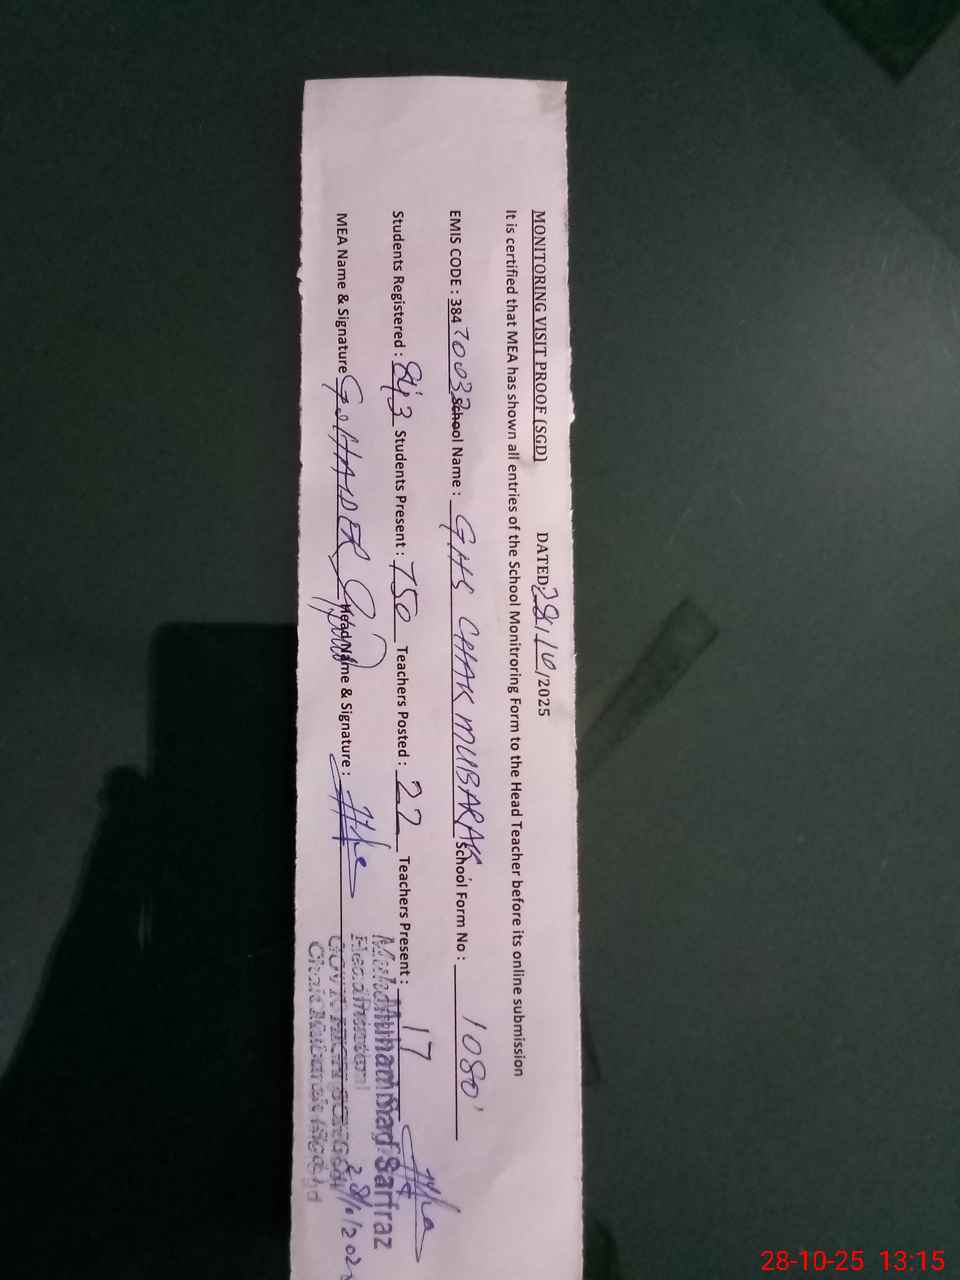 MONITORING VISIT PROOF (SGD) DATED: 28/10/2025
It is certified that MEA has shown all entries of the School Monitroring Form to the Head Teacher before its online submission
EMIS CODE : 38470032 School Name : GHS CHAK MUBARAK School Form No : 1080
Students Registered : 843 Students Present : 750 Teachers Posted : 22 Teachers Present : 17
MEA Name & Signature G. HAIDER Head Name & Signature :
Sarfraz
28-10-25 13:15